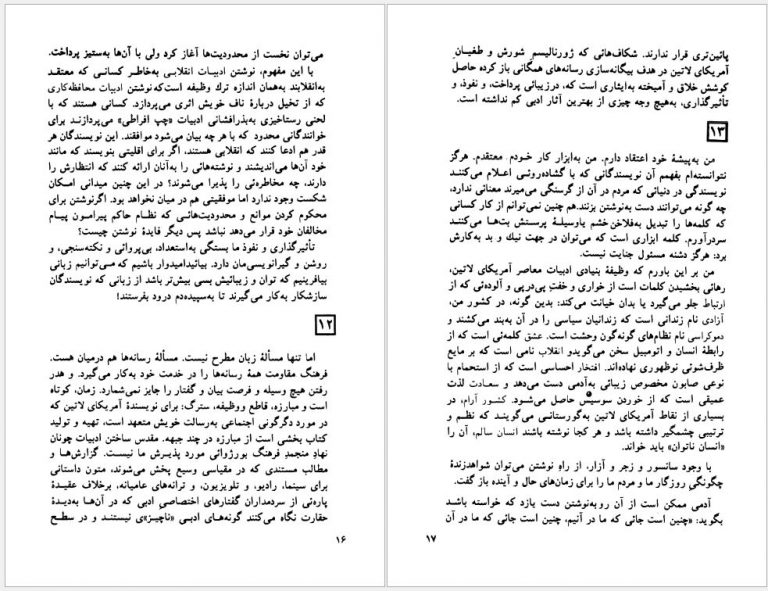 می‌توان نخست از محدودیت‌ها آغاز کرد ولی با آن‌ها به‌ستیز پرداخت.
با این مفهوم، نوشتن ادبیات انقلابی به‌خاطر کسانی که معتقد
به‌انقلابند به‌همان اندازه ترك وظیفه است‌که‌نوشتن ادبیات محافظه‌کاری
که از تخیل دربارهٔ ناف خویش اثری می‌پردازد. کسانی هستند که با
لحنی رستاخیزی به‌بذرافشانی ادبیات «چپ افراطی» می‌پردازند برای
خوانندگانی محدود که با هر چه بیان می‌شود موافقند. این نویسندگان هر
قدر هم ادعا کنند که انقلابی هستند، اگر برای اقلیتی بنویسند که مانند
خود آن‌ها می‌اندیشند و نوشته‌هائی را به‌آنان ارائه کنند که انتظارش را
دارند، چه مخاطره‌ئی را پذیرا می‌شوند؟ در این چنین میدانی امکان
شکست وجود ندارد اما موفقیتی هم در میان نخواهد بود. اگرنوشتن برای
محکوم کردن موانع و محدودیت‌هائـی که نظام حاکم پیرامـون پیـام
مخالفان خود قرار می‌دهد نباشد پس دیگر فایدهٔ نوشتن چیست؟
تأثیرگذاری و نفوذ ما بستگی به‌استعداد، بی‌پروائی و نکته‌سنجی، و
روشن و گیرانویسی‌مان دارد. بیائیدامیدوار باشیم که مـی‌توانیم زبانی
بیافرینیم که توان و زیبائیش بسی بیش‌تر باشد از زبانی که نویسندگان
سازشکار به‌کار می‌گیرند تا به‌سپیده‌دم درود بفرستند!
۱۲
اما تنها مسألهٔ زبان مطرح نیست. مسألهٔ رسانه‌ها هم درمیان هست.
فرهنگ مقاومت همهٔ رسانه‌ها را در خدمت خود به‌کار می‌گیرد. و هدر
رفتن هیچ وسیله و فرصت بیان و گفتار را جایز نمی‌شمارد. زمان، کوتاه
است و مبارزه، قاطع ووظیفه، سترگ: برای نویسندهٔ آمریکای لاتین که
در مورد دگرگونی اجتماعی به‌رسالت خویش متعهد است، تهیه و تولید
کتاب بخشی است از مبارزه در چند جبهه. مقدس ساختن ادبیات چونان
نهادِ منجمدِ فرهنگ بورژوائی مورد پذیـرش ما نیست. گزارش‌هـا و
مطالب مستندی که در مقیاسی وسیع پخش می‌شوند، متون داستانی
برای سینما، رادیو، و تلویزیـون، و ترانه‌های عامیانه، برخلاف عقیـدهٔ
پاره‌ئی از سردمداران گفتارهای اختصاصی ادبی که در آن‌ها به‌دیـدهٔ
حقارت نگاه می‌کنند گونه‌هـای ادبـی «ناچیـز»ی نیستنـد و در سطـح
۱۶
پائین‌تری قرار ندارند. شکاف‌هائی که ژورنالیسم شورش و طغیـان
آمریکای لاتین در هدف بیگانه‌سازی رسانه‌های همگانی باز کرده حاصل
کوشش خلاق و آمیخته به‌ایثاری است که، درزیبائی پرداخت، و نفوذ، و
تأثیرگذاری، به‌هیچ وجه چیزی از بهترین آثار ادبی کم نداشته است.
۱۳
من به‌پیشهٔ خود اعتقاد دارم. من به‌ابزار کار خـودم معتقدم. هرگز
نتوانسته‌ام بفهمم آن نویسندگانی که با گشاده‌روئـی اعـلام می‌کننـد
نویسندگی در دنیائی که مردم در آن از گرسنگی می‌میرند معنائی ندارد،
چه گونه می‌توانند دست به‌نوشتن بزنند.هم چنین نمی‌توانم از کار کسانی
که کلمه‌ها را تبدیل به‌فلاخن‌خشم یاوسیلهٔ پرستـش بت‌هـا می‌کننـد
سردرآورم. کلمه ابزاری است که می‌توان در جهت نیك و بد به‌کارش
برد: هرگز دشنه مسئول جنایت نیست.
من بر این باورم که وظیفهٔ بنیادی ادبیات معاصر آمریکای لاتین،
رهائی بخشیدن کلمات است از خواری و خفتِ پی‌درپی و آلوده‌ئی که از
ارتباط جلو می‌گیرد یا بدان خیانت می‌کند: بدین گونه، در کشور من،
آزادی نام زندانی است که زندانیان سیاسی را در آن به‌بند می‌کشند و
دموکراسی نام نظام‌های گونه‌گون وحشت است. عشق کلمه‌ئی است که از
رابطهٔ انسان و اتومبیل سخن می‌گویدو انقلاب نامی است که بر مایع
ظرف‌شوئی نوظهوری نهاده‌اند. افتخار احساسی است که از استحمام با
نوعی صابون مخصوص زیبائی به‌آدمی دست می‌دهد و سعـادت لذت
عمیقی است که از خوردن سوسیس حاصل می‌شـود. کشـور آرام، در
بسیاری از نقاط آمریکای لاتین به‌گورستانـی می‌گوینـد که نظـم و
ترتیبی چشمگیر داشته باشد و هر کجا نوشته باشند انسان سالم، آن را
«انسان ناتوان» باید خواند.
با وجود سانسور و زجر و آزار، از راه نوشتن می‌توان شواهدزندهٔ
چگونگیِ روزگار ما و مردم ما را برای زمان‌های حال و آینده باز گفت.
آدمی ممکن است از آن روبه‌نوشتن دست یازد که خواسته باشـد
بگوید: «چنین است جائی که ما در آنیم، چنین است جائی که ما در آن
۱۷